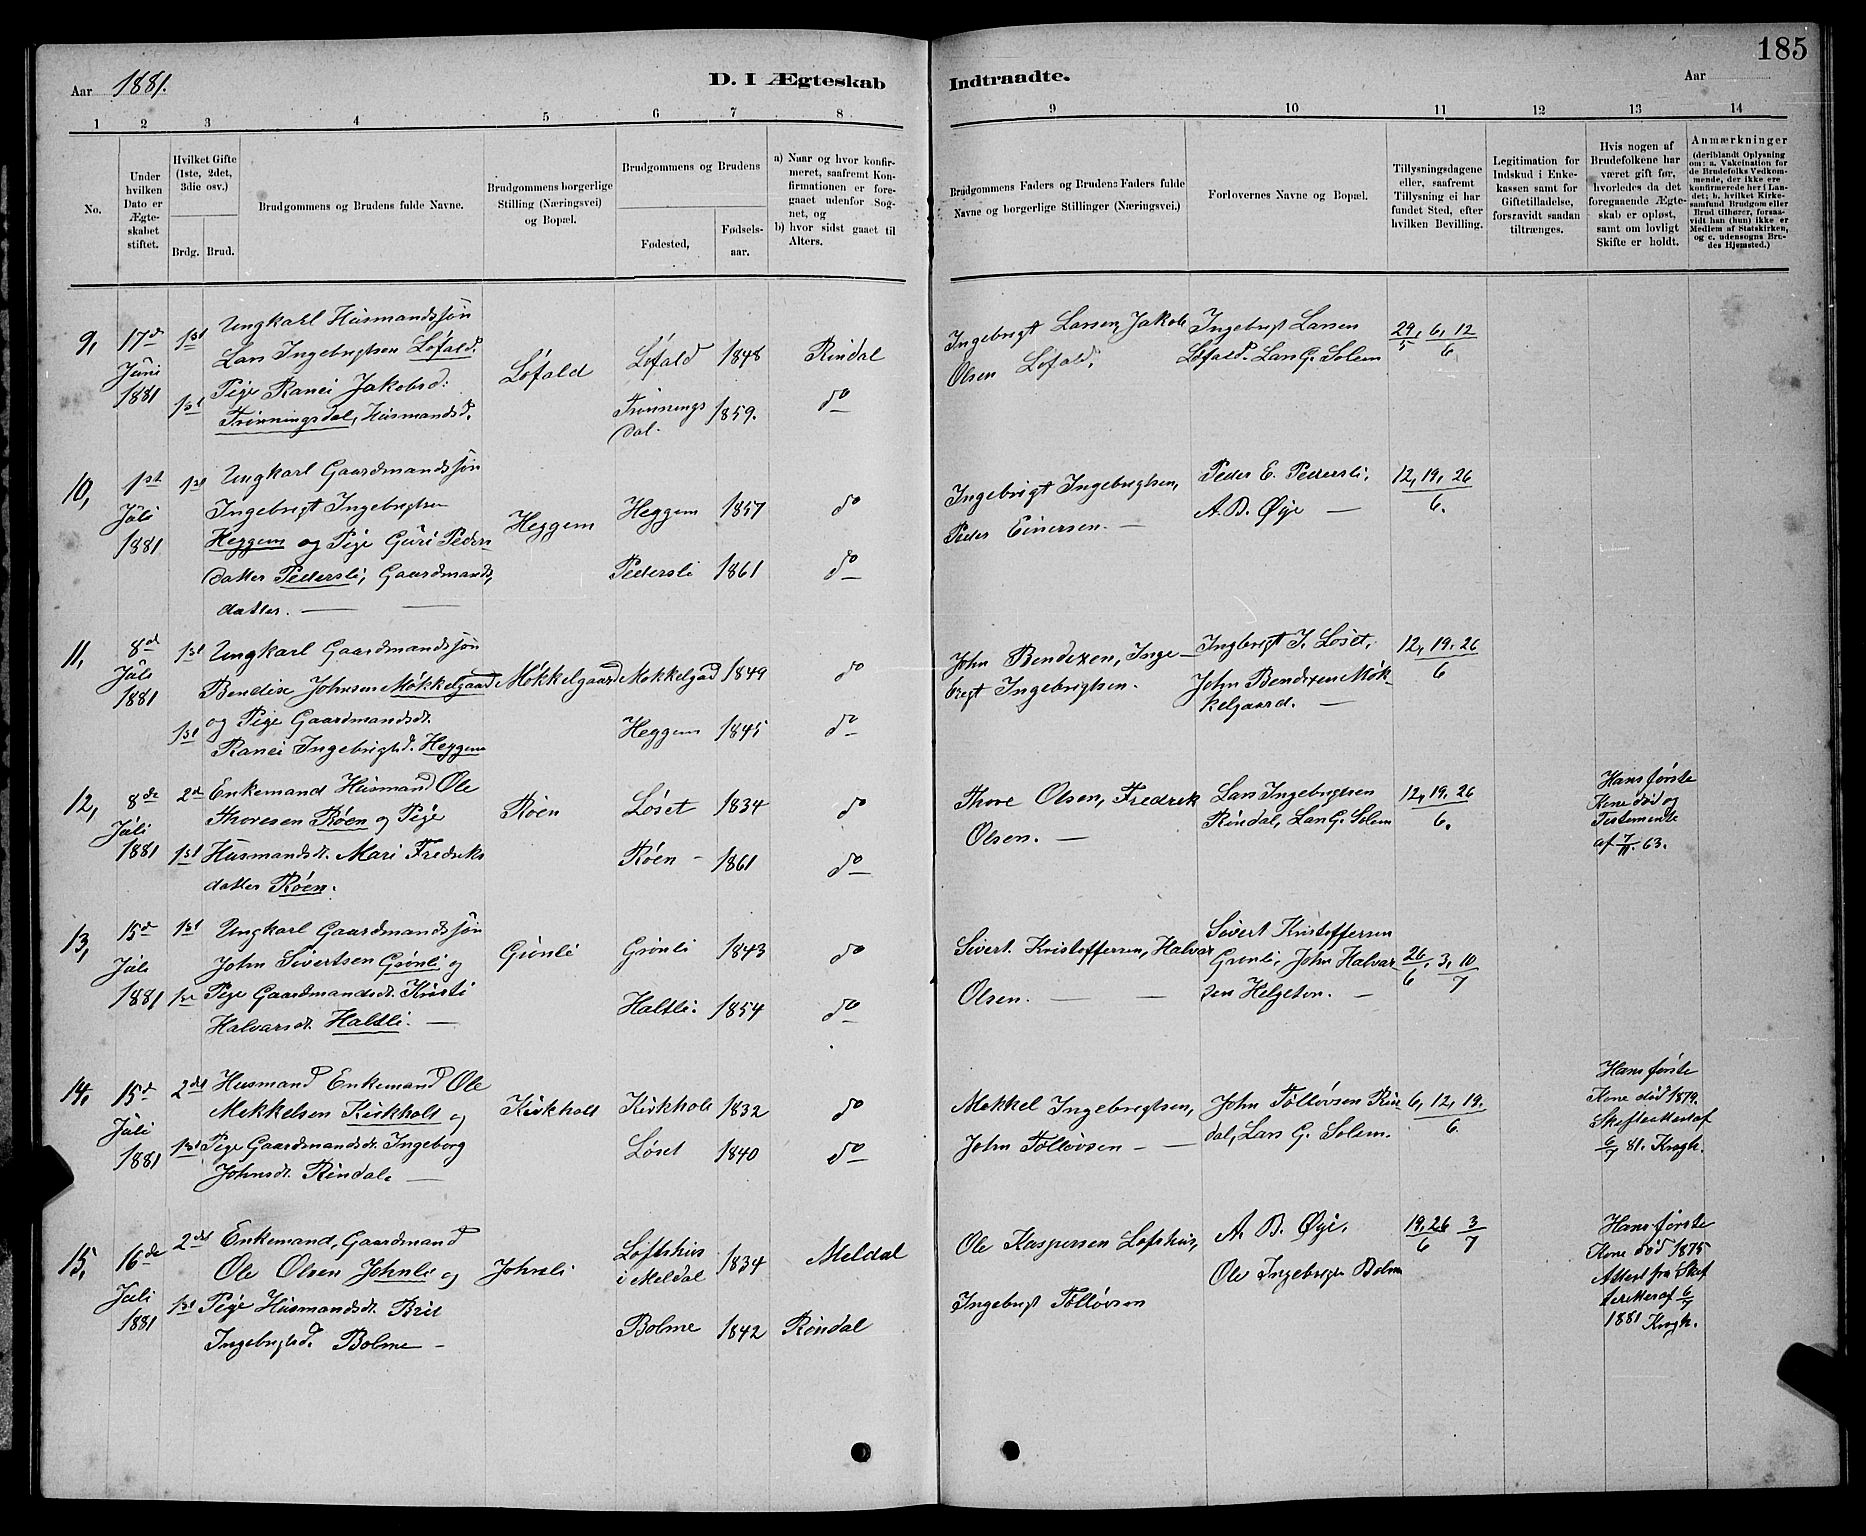 185
Aar 1881.
D. I Ægteskab Indtraadte.
Aar
1 2 3 4 5 6 7 8 9 10 11 12 13 14
No.
Under hvilken Dato er Ægte-skabet stiftet.
Hvilket Gifte (1ste, 2det, 3die osv.)
Brdg. Brud.
Brudgommens og Brudens fulde Navne.
Brudgommens borgerlige Stilling (Næringsvei) og Bopæl.
Brudgommens og Brudens
Fødested,
Fødsels-aar.
a) Naar og hvor konfir-meret, saafremt Kon-firmationen er fore-gaaet udenfor Sog-net, og
b) hvor sidst gaaet til Alters.
Brudgommens Faders og Brudens Faders fulde Navne og borgerlige Stillinger (Næringsvei.)
Forlovernes Navne og Bopæl.
Tillysningsdagene eller, saafremt Tillysning ei har fundet Sted, efter hvilken Bevilling.
Legitimation for Indskud i Enke-kassen samt for Giftetilladelse, forsravidt saadan tiltrænges.
Hvis nogen af Brudefolkene har været gift før, hvorledes da det foregaaende Ægte-skab er opløst, samt om lovligt Skifte er holdt.
Anmærkninger
(deriblandt Oplysning om: a. Vakcination for de Brudefolks Vedkom-mende, der ikke ere konfirmerede her i Lan-det; b. hvilket Kirke-samfund Brudgom eller Brud tilhører, forsaa-vidt han (hun) ikke er Medlem af Statskirken, og c. udensogns Bru-des Hjemsted.)
9, 17de Juni 1881
1st
Ungkarl Husmandssøn
Lars Ingebrigtsen Løfald.
1st Pige Ranei Jakobsd:
Trønningsdal, Husmandsd.
Løfald
Løfald 1848 Rindal
Trønnings
dal. 1859. do
Ingebrigt Larsen, Jakob
Olsen Løfald.
Ingebrigt Larsen
Løfald. Lars G. Solem
29/5, 6, 12/6
10, 1st Juli 1881
1st
Ungkarl Gaardmandssøn
Ingebrigt Ingebrigtsen
Heggem og Pige Guri Peders
datter Pedersli, Gaardmands,
datter.
Heggem
Heggem 1857 do
Pedersli 1861 do
Ingebrigt Ingebrigtsen,
Peder Einersen.
Peder E. Pedersli,
A. B. Øye
12, 19, 26/6.
11, 8de Juli 1881
1st Ungkarl Gaardmandssøn
Bendix Johnsen Møkkelgaard
og Pige Gaardmandsdt.
1st Ranei Ingebrigtsd. Heggem
Møkkelgaard
Møkkelgad 1849 do
Heggem 1845 do
John Bendixen, Inge-
brigt Ingebrigtsen.
Ingbrigt I. Løset,
John Bendixen Møk-
kelgaard.
12, 19. 26/6
12, 8de Juli 1881
2d Enkemand Husmand Ole
Thoresen Røen og Pige
1st Husmandsdt. Mari Fredriks
datter Røen.
Røen
Løset 1834 do
Røen 1861 do
Thore Olsen, Fredrik
Olsen.
Lars Ingebrigtsen
Rindal, Lars G. Solem
12, 19, 26/6.
Hans første
Kone død og
Testemente
af 7/11. 63.
13, 15de Juli 1881
1st Ungkarl Gaardmandssøn
John Sivertsen Grønli og
1st Pige Gaardmandsdt. Kirsti
Halvarsdt. Haltli.
Grønli
Grønli 1843 do
Haltli. 1854 do
Sivert. Kristoffersen, Halvar
Olsen.
Sivert Kristoffersen
Grønli, John Halvar-
sen Helgeton.
26/6, 3, 10/7
14, 15de Juli 1881
2det Husmand Enkemand Ole
Mekkelsen Kirkholt og
1st Pige Gaardmandsdt. Ingeborg
Johnsdt. Rindal.
Kirkholt
Kirkholt 1832 do
Løset 1840 do
Mekkel Ingebrigtsen,
John Tølløvsen
John Tølløvsen Rin
dal, Lars G. Solem.
6, 12, 19./6
Hans første
Kone død 1879.
Skifteattest af
6/7 81. Krogh.
15, 16de Juli 1881
2det Enkemand, Gaardmand
Ole Olsen Johnli og
1st Pige Husmandsdt. Brit
Ingebrigtsd. Bolme
Johnsli
Løftshus
i Meldal 1834 Meldal
Bolme 1842 Rindal
Ole Kaspersen Lofshus,
Ingebrigt Tølløvsen
A. B. Øye.
Ole Ingebrigts Bolme
19, 26/6 3/7
Hans første
Kone død 1875
Attest fra Skif
teretten af 6/7
1881 Krogh.